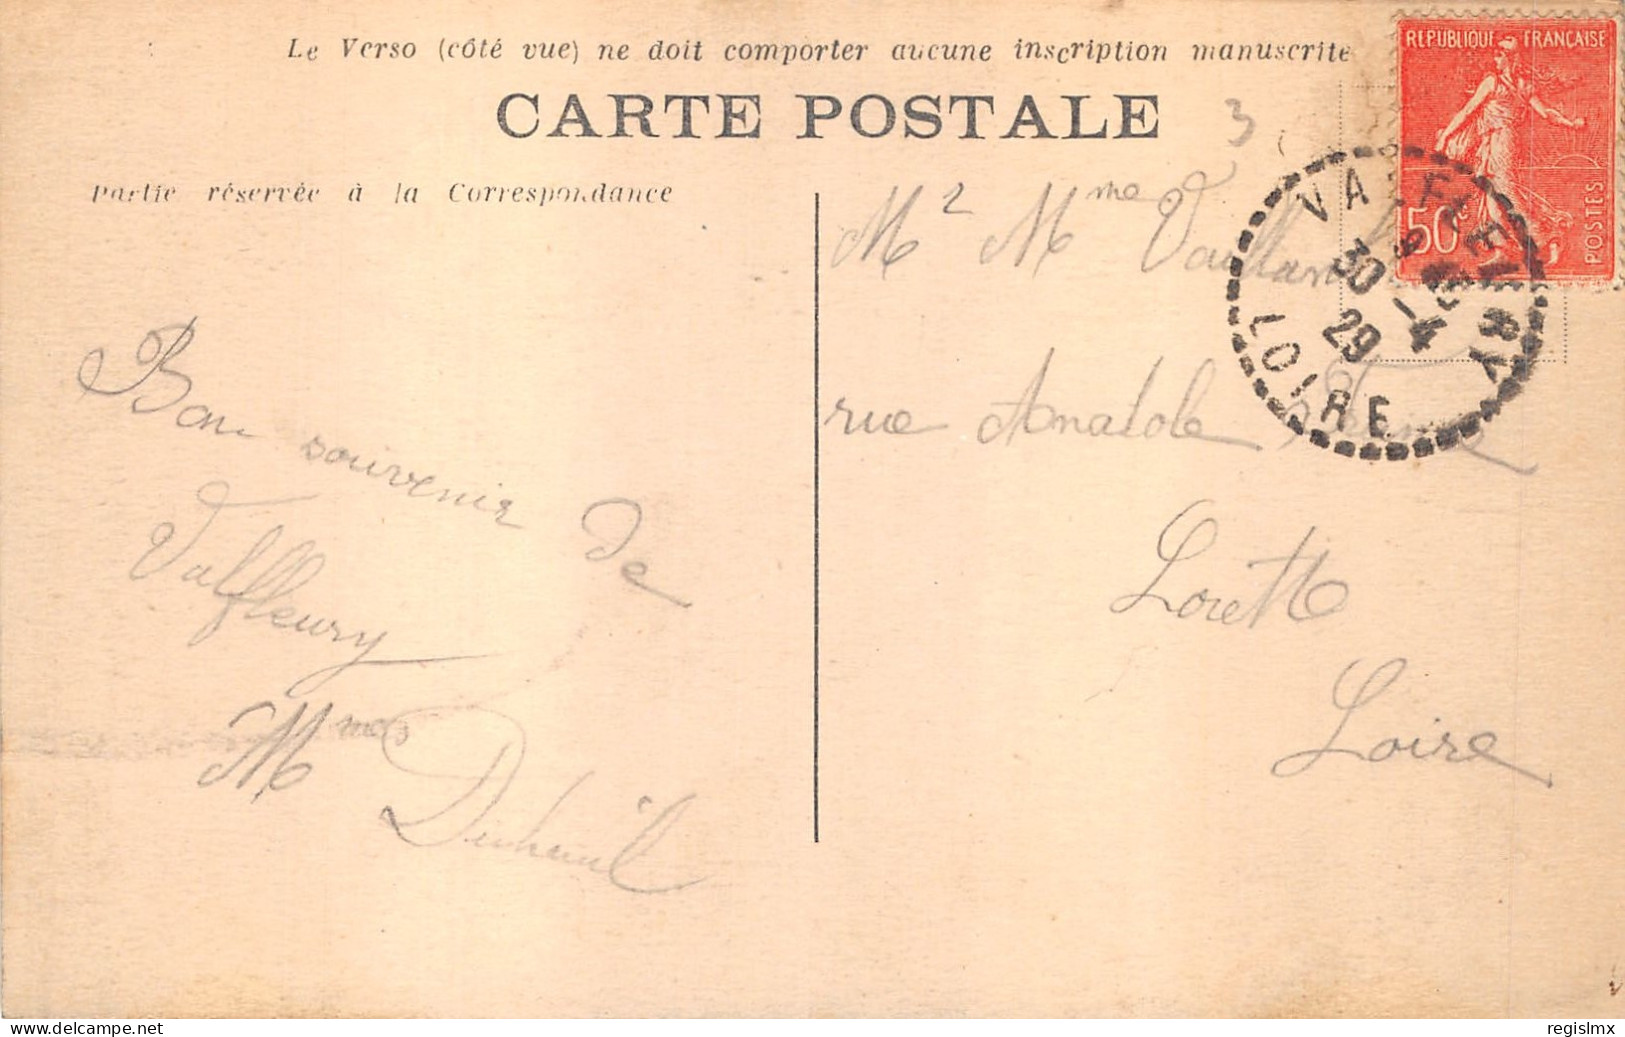 Le Verso (côté vue) ne doit comporter aucune inscription manuscrite
CARTE POSTALE
3
Partie réservée à la Correspondance
REPUBLIQUE FRANÇAISE
50c
POSTES
VALFLEURY
30 -4
29
LOIRE
Mr Mme
rue Anatole
Lorette
Loire
Bon souvenir de
Valfleury
Mme
delcampe.net
regislmx